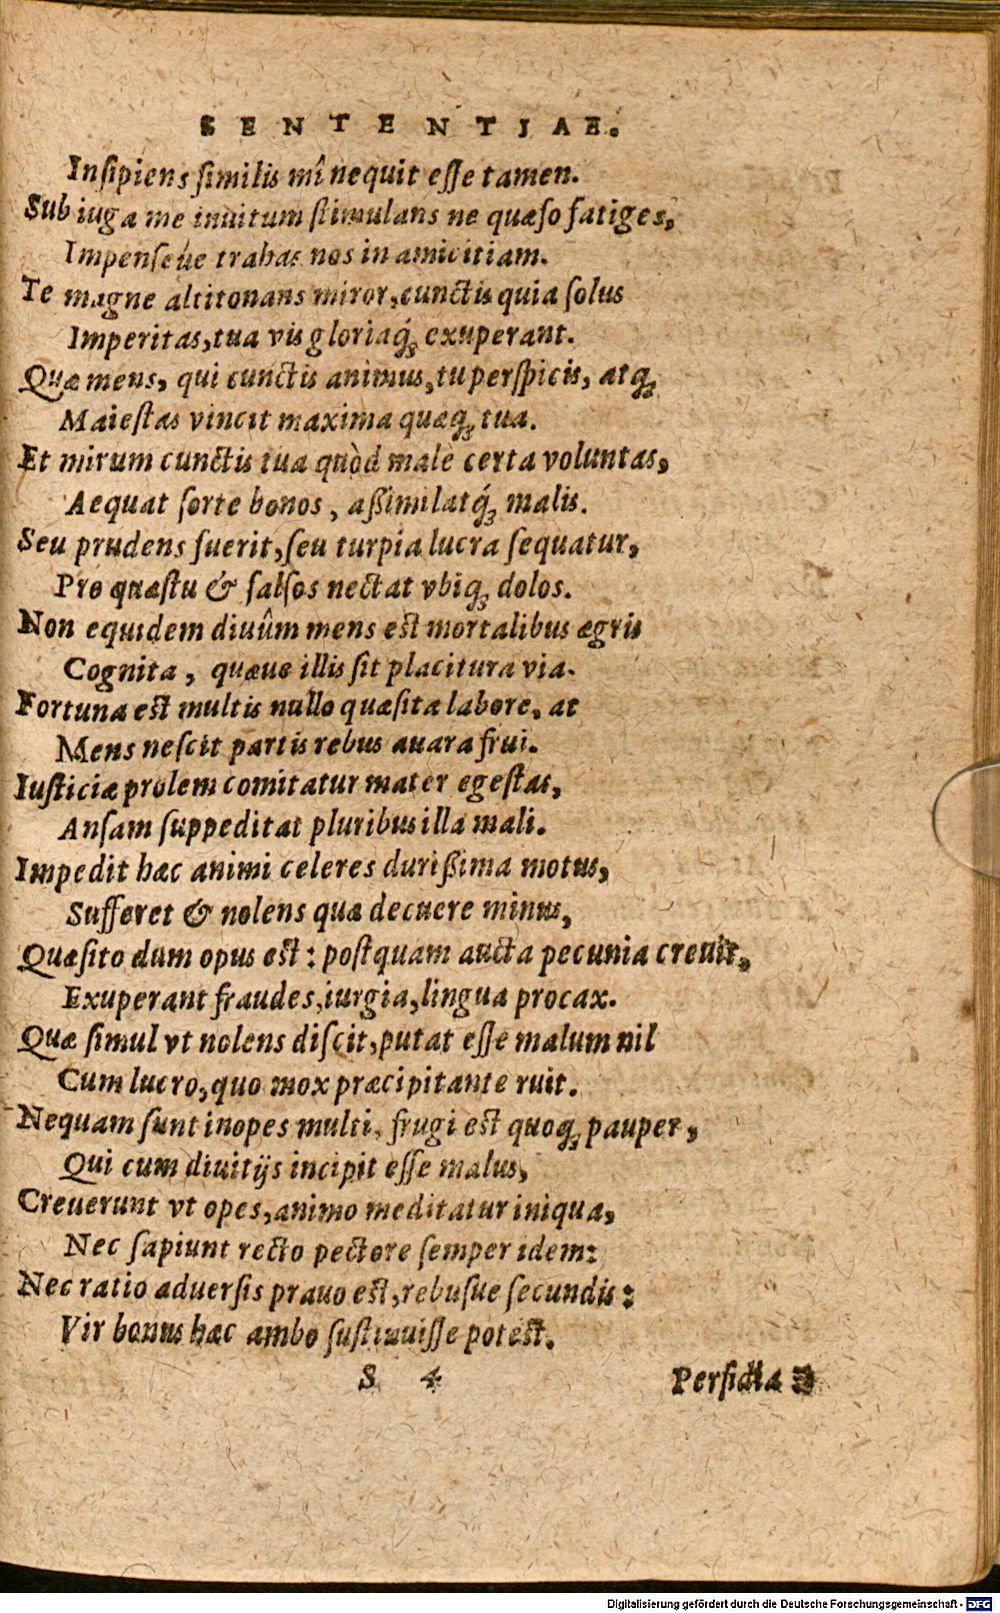 SENTENTIAE.
Insipiens similis mî nequit esse tamen.
Sub iuga me inuitum stimulans ne quæso fatiges,
Impenseúe trahas nos in amicitiam.
Te magne altitonans miror, cunctis quia solus
Imperitas, tua vis gloriaq́ꝫ exuperant.
Quæ mens, qui cunctis animus, tu perspicis, atqꝫ
Maiestas vincit maxima quæqꝫ tua.
Et mirum cunctis tua quòd malè certa voluntas,
Aequat sorte bonos, aßimilatq́ꝫ malis.
Seu prudens fuerit, seu turpia lucra sequatur,
Pro quæstu & falsos nectat vbiqꝫ dolos.
Non equidem diuûm mens est mortalibus ægris
Cognita, quæue illis sit placitura via.
Fortuna est multis nullo quæsita labore, at
Mens nescit partis rebus auara frui.
Iusticiæ prolem comitatur mater egestas,
Ansam suppeditat pluribus illa mali.
Impedit hæc animi celeres durißima motus,
Sufferet & nolens quæ decuere minus,
Quæsito dum opus est: postquam aucta pecunia creuit,
Exuperant fraudes, iurgia, lingua procax.
Quæ simul vt nolens discit, putat esse malum nil
Cum lucro, quo mox præcipitante ruit.
Nequam sunt inopes multi, frugi est quoqꝫ pauper,
Qui cum diuitijs incipit esse malus,
Creuerunt vt opes, animo meditatur iniqua,
Nec sapiunt recto pectore semper idem:
Nec ratio aduersis prauo est, rebusue secundis:
Vir bonus hæc ambo sustinuisse potest.
S 4
Persidia
Digitalisierung gefördert durch die Deutsche Forschungsgemeinschaft - DFG